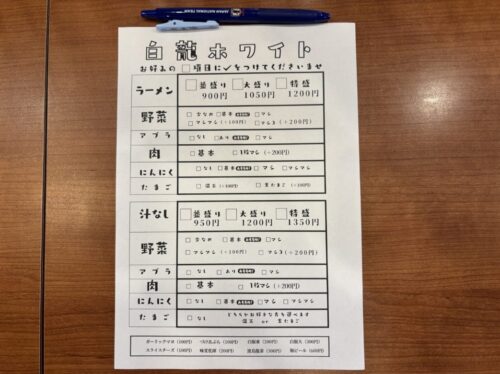 JAPAN NATIONAL TEAM
白龍ホワイト
お好みの □項目に✓をつけてくださいませ
ラーメン □並盛り 900円 □大盛り 1050円 □特盛 1200円
野菜 □少なめ □基本 □マシ
□マシマシ(+100円) □マシ3(+200円)
アブラ □なし □あり □マシ
肉 □基本 □1枚マシ(+200円)
にんにく □なし □基本 □マシ □マシマシ
たまご □温玉(+100円) □生たまご(+100円)
汁なし □並盛り 950円 □大盛り 1200円 □特盛 1350円
野菜 □少なめ □基本 □マシ
□マシマシ(+100円) □マシ3(+200円)
アブラ □なし □あり □マシ
肉 □基本 □1枚マシ(+200円)
にんにく □なし □基本 □マシ □マシマシ
たまご □なし どちらかお好きな方を選べます
温玉 or 生たまご
ガーリックマヨ(100円)
スライスチーズ(100円) 味変乾麺(200円) 瓶ビール(600円)